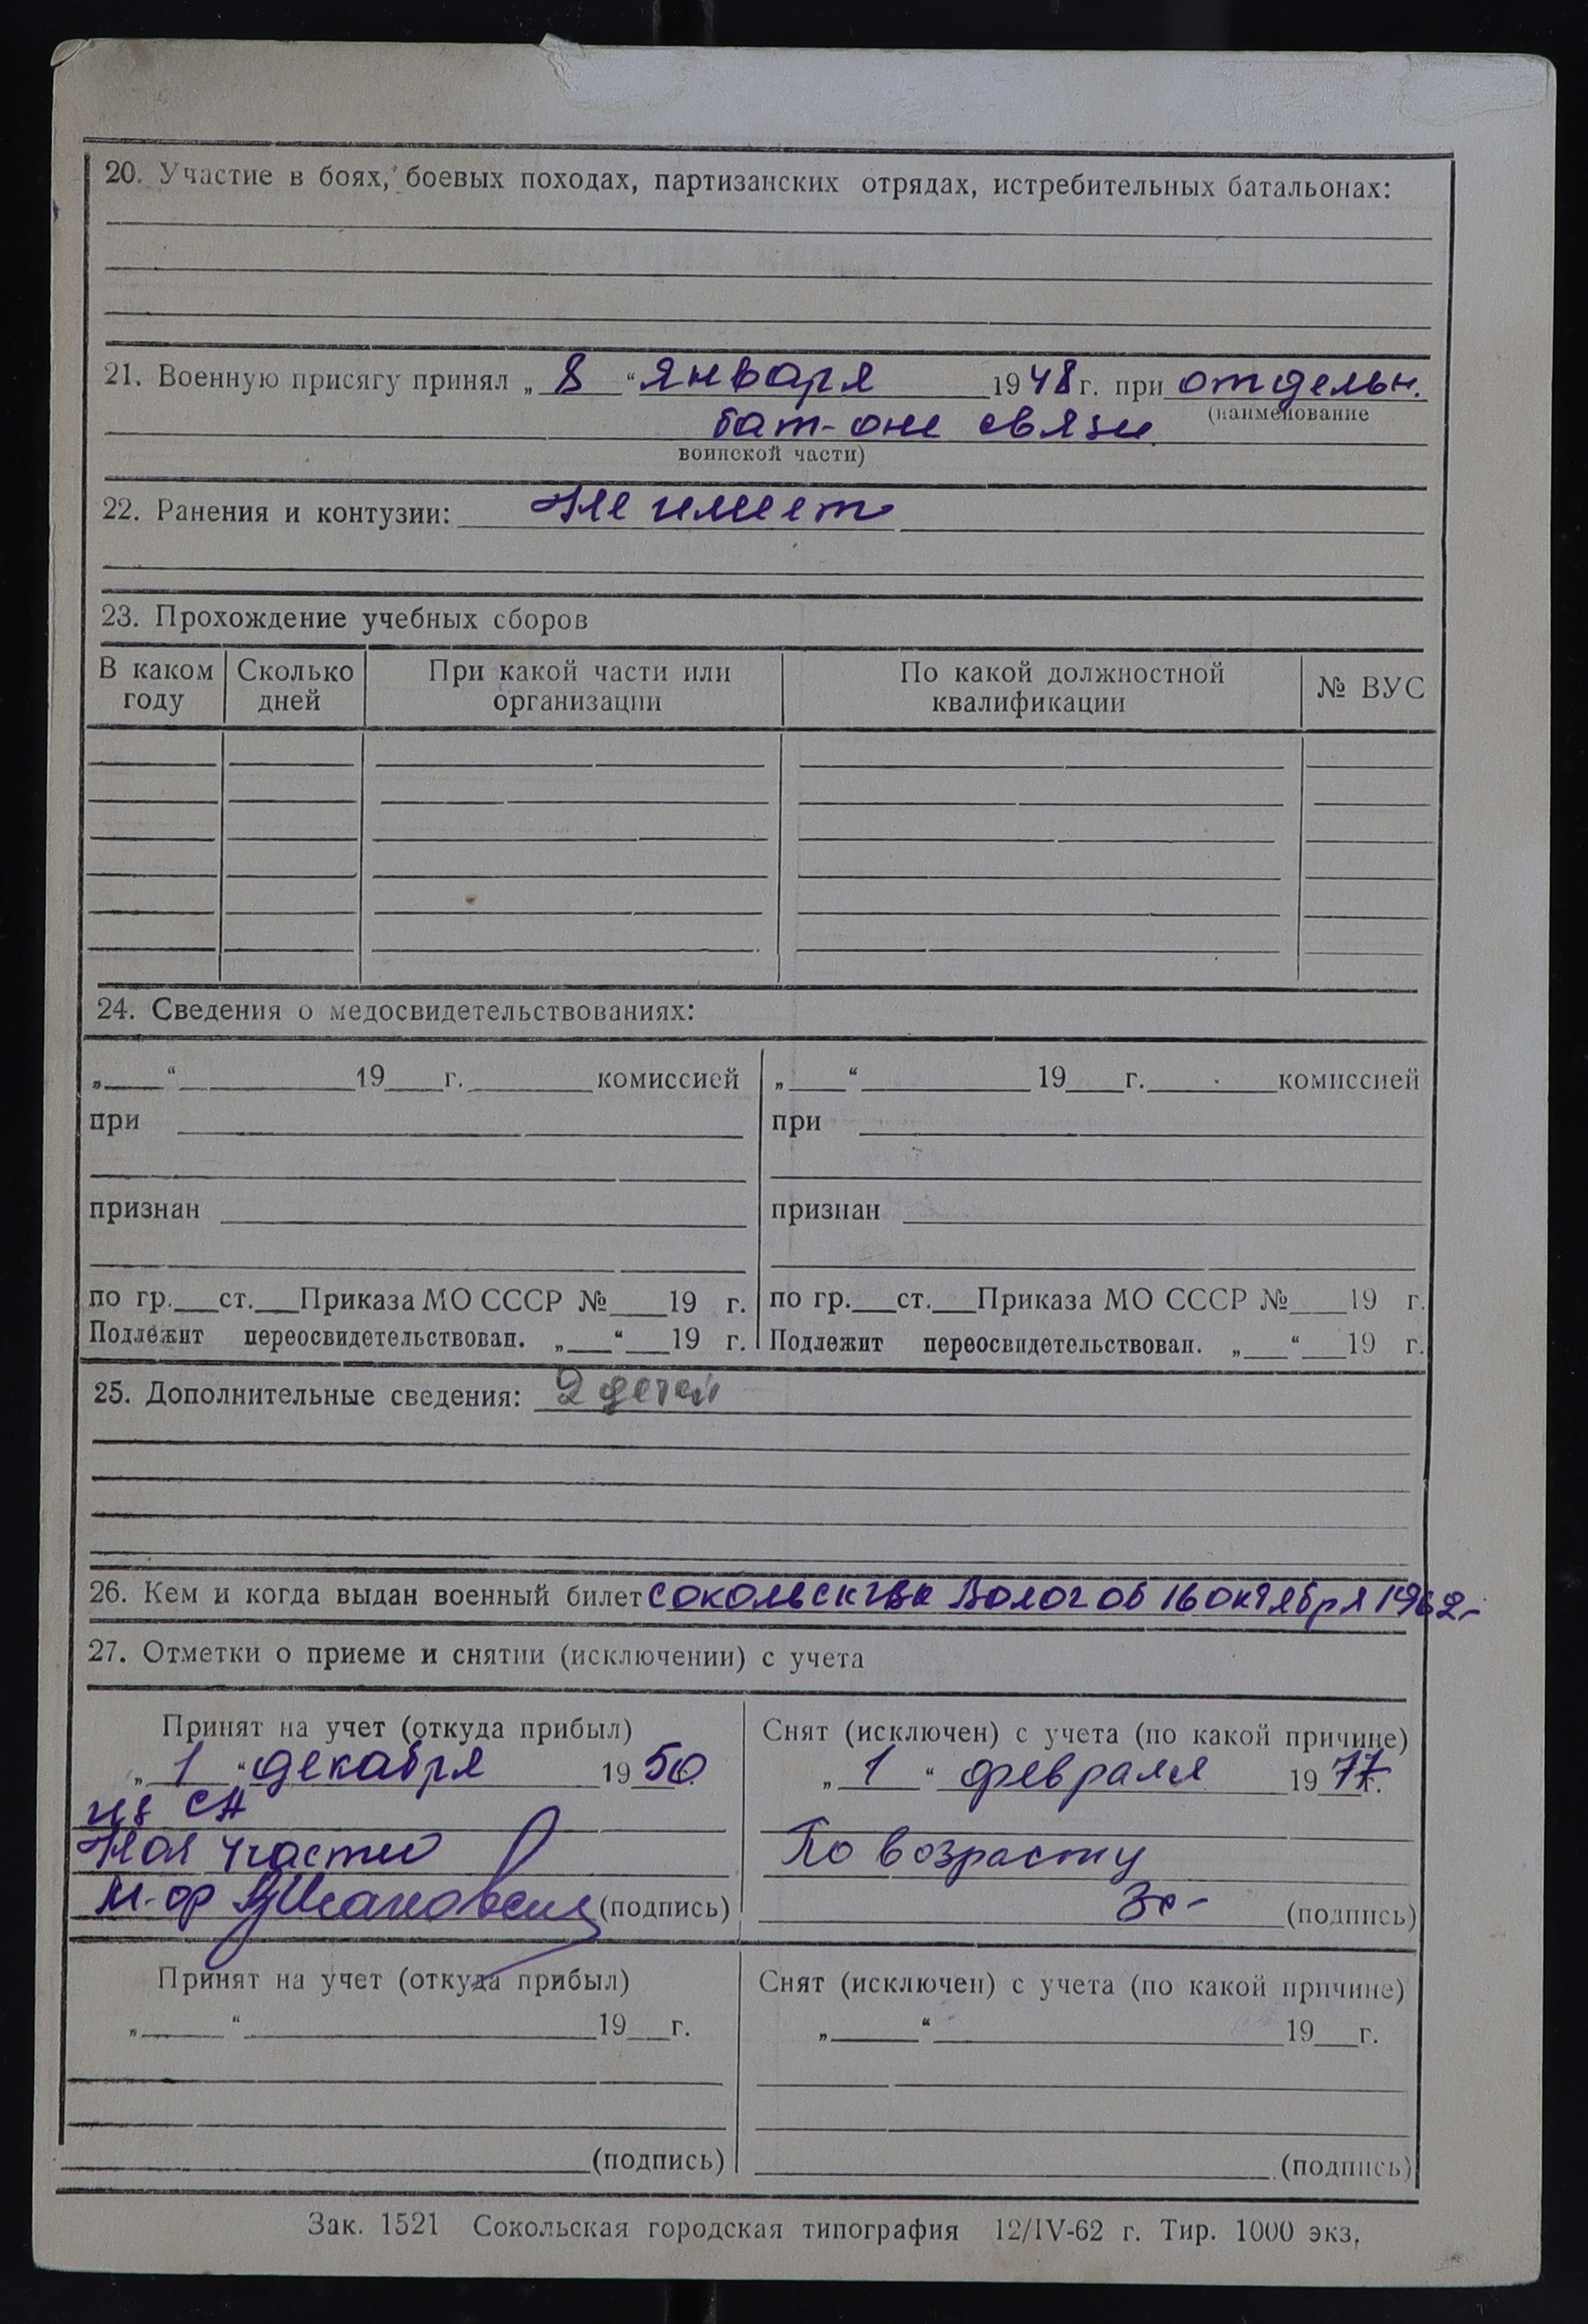 20. Участие в боях, боевых походах, партизанских отрядах, истребительных батальонах:
21. Военную присягу принял „ 8 “ января 1948 г. при отдельн.
(наименование
бат-оне связи
воинской части)
22. Ранения и контузии: Не имеет
23. Прохождение учебных сборов
В каком году Сколько дней При какой части или организации По какой должностной квалификации № ВУС
24. Сведения о медосвидетельствованиях:
„ “ 19 г. комиссией „ “ 19 г. комиссией
при при
признан признан
по гр. ст. Приказа МО СССР № 19 г. по гр. ст. Приказа МО СССР № 19 г.
Подлежит переосвидетельствован. „ “ 19 г. Подлежит переосвидетельствован. „ “ 19 г.
25. Дополнительные сведения: 2 детей
26. Кем и когда выдан военный билет Сокольск Волог об 16 октября 1962
27. Отметки о приеме и снятии (исключении) с учета
Принят на учет (откуда прибыл) Снят (исключен) с учета (по какой причине)
„ 1 “ декабря 1950 „ 1 “ февраля 1977 г.
из СА
Нач части По возрасту
м-ор (подпись) (подпись)
Принят на учет (откуда прибыл) Снят (исключен) с учета (по какой причине)
„ “ 19 г. „ “ 19 г.
(подпись) (подпись)
Зак. 1521 Сокольская городская типография 12/IV-62 г. Тир. 1000 экз.